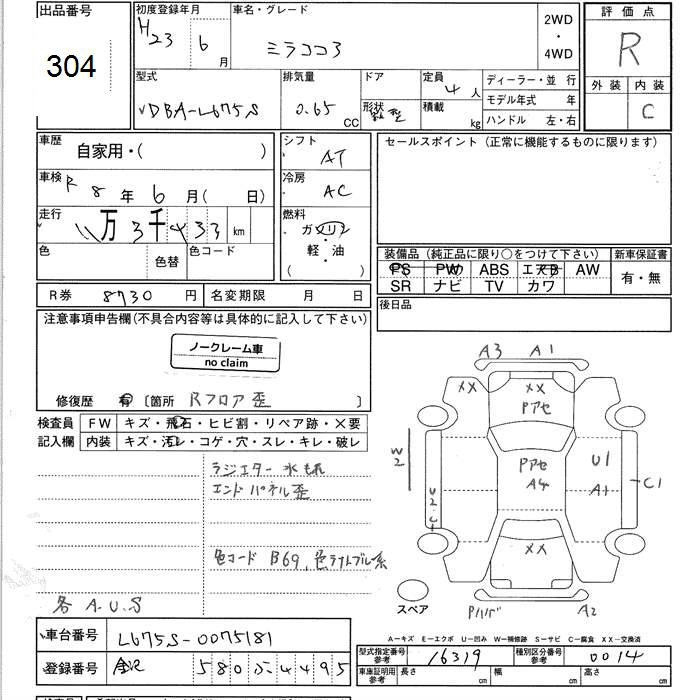 出品番号 304
初度登録年月 H23 6月
車名・グレード ミラココア
2WD・4WD
評価点 R
外装 内装 C
型式 DBA-L675S
排気量 0.65 CC
ドア 形状
定員 4人
積載 kg
ディーラー・並行
モデル年式 年
ハンドル 左・右
車歴 自家用・( )
車検 R 8年 6月( 日)
走行 11万 3千 433 km
色 色替 色コード
シフト AT
冷房 AC
燃料 ガソリン・軽・油 ( )
セールスポイント(正常に機能するものに限ります)
装備品(純正品に限り○をつけて下さい)
PS PW ABS エアB AW
SR ナビ TV カワ
新車保証書 有・無
R券 8730 円
名変期限 月 日
後日品
注意事項申告欄(不具合内容等は具体的に記入して下さい)
ノークレーム車
no claim
修復歴 有 〔箇所 Rフロア歪
検査員記入欄
FW キズ・飛石・ヒビ割・リペア跡・×要
内装 キズ・汚レ・コゲ・穴・スレ・キレ・破レ
ラジエター水もれ
エンドパネル歪
色コード B69, 色ライトブルー系
各 A.U.S
A3 A1
XX XX
Pアセ
W2
Pアセ
A4
U1
A1
C1
U2・C
XX
スペア
A2
A-キズ E-エクボ U-凹み W-補修跡 S-サビ C-腐食 XX-交換済
車台番号 L675S-0075181
登録番号 580 ぶ 4495
型式指定番号 参考 16319
種別区分番号 参考 0014
車庫証明用 参考 長さ cm 幅 cm 高さ cm